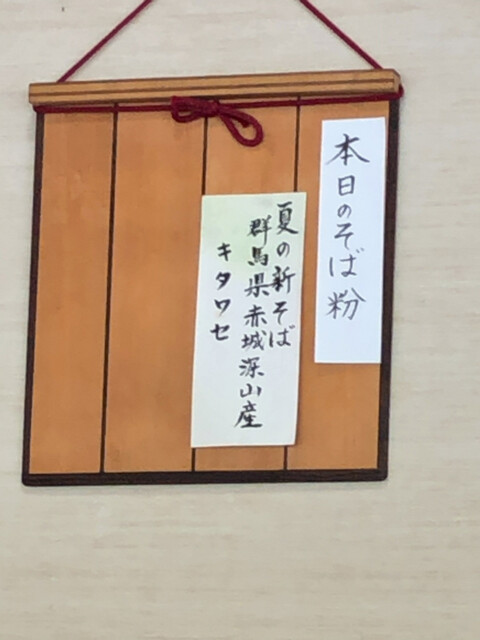 本日のそば粉
夏の新そば
群馬県赤城深山産
キタワセ